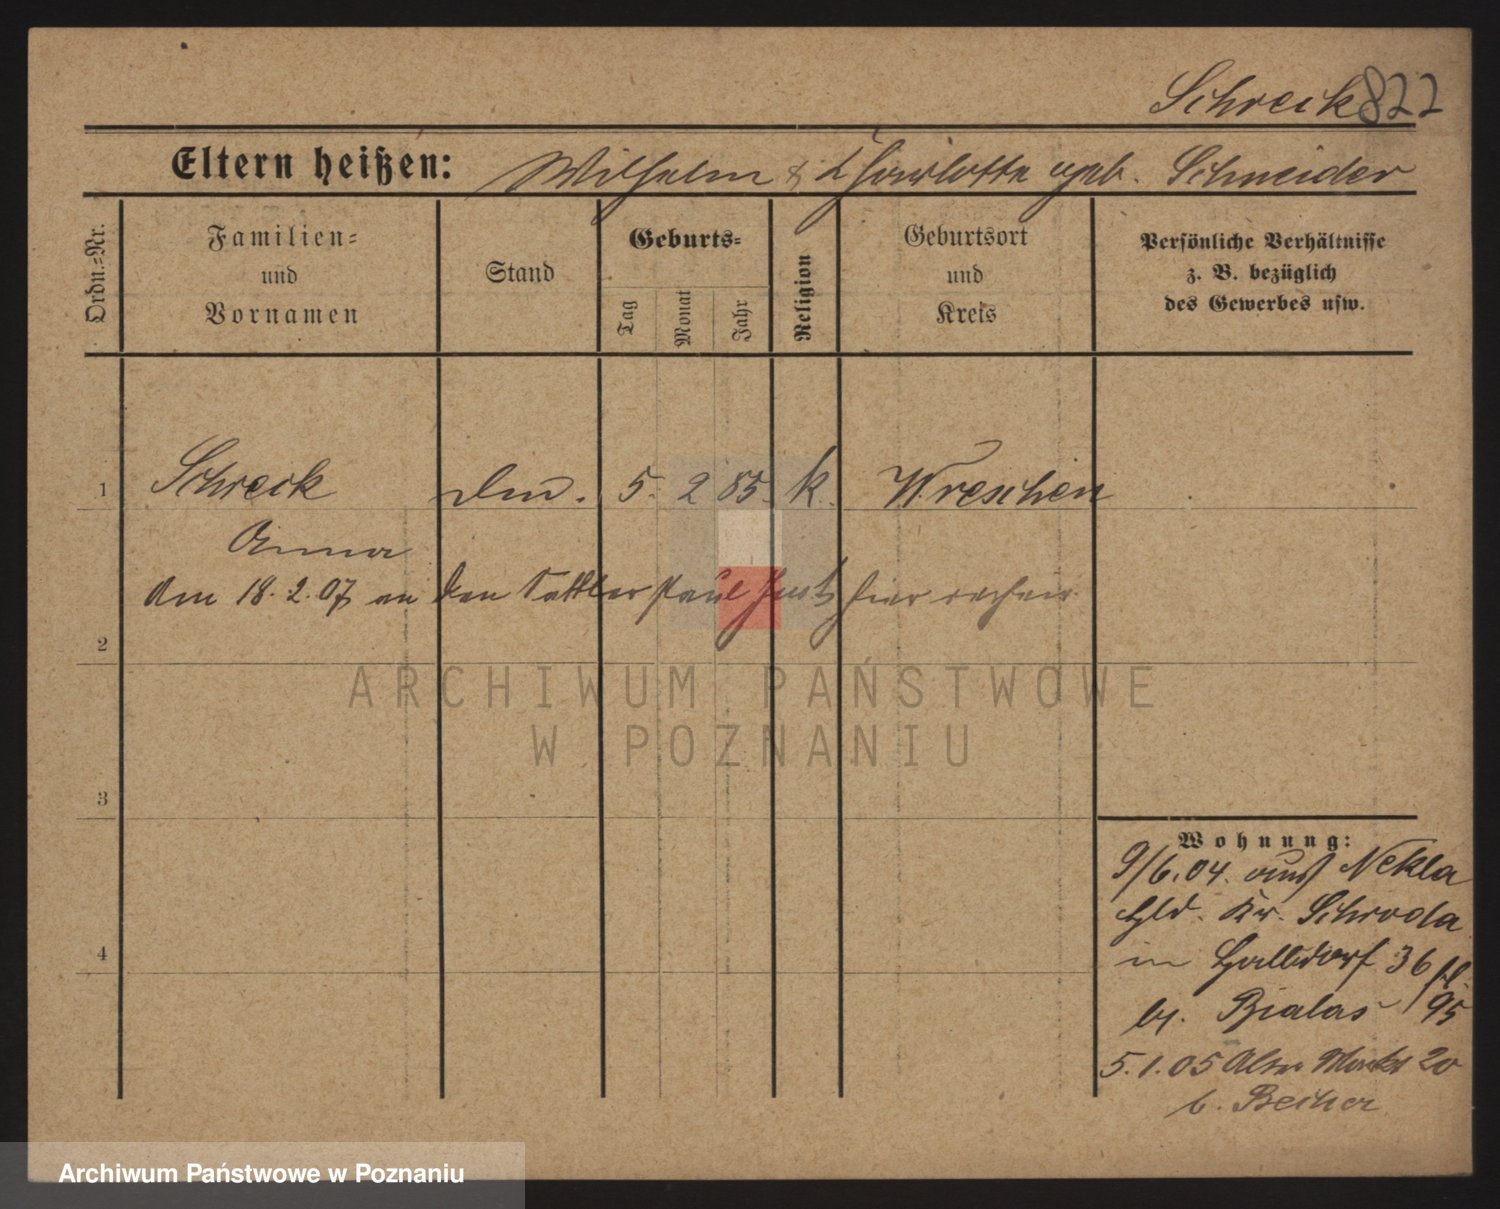 Schreck 822
Eltern heißen: Wilhelm & Charlotte geb. Schneider
Ordn.=Nr.
Familien=
und
Vornamen
Stand
Geburts=
Tag
Monat
Jahr
Religion
Geburtsort
und
Kreis
Persönliche Verhältnisse
z. B. bezüglich
des Gewerbes usw.
1 Schreck 5. 2 85. k. Wreschen
Anna
Am 18.2.07 an den Sattler Paul hier verheir.
2
3
4
Wohnung:
9/6.04. aus Nekla
Kr. Schroda
in Halbdorf 36
b. Bialas 95
5.1.05 Alter Markt 20
b. Becker
ARCHIWUM PAŃSTWOWE
W POZNANIU
Archiwum Państwowe w Poznaniu